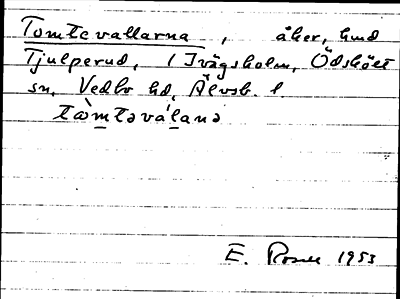 Tomtevallarna, åker, hmd
Tjulperud, 1 Ivägsholm, Ödskölt
sn, Vedbo hd, Älvsb. l.
tòmtəválanə
E. Rosell 1953